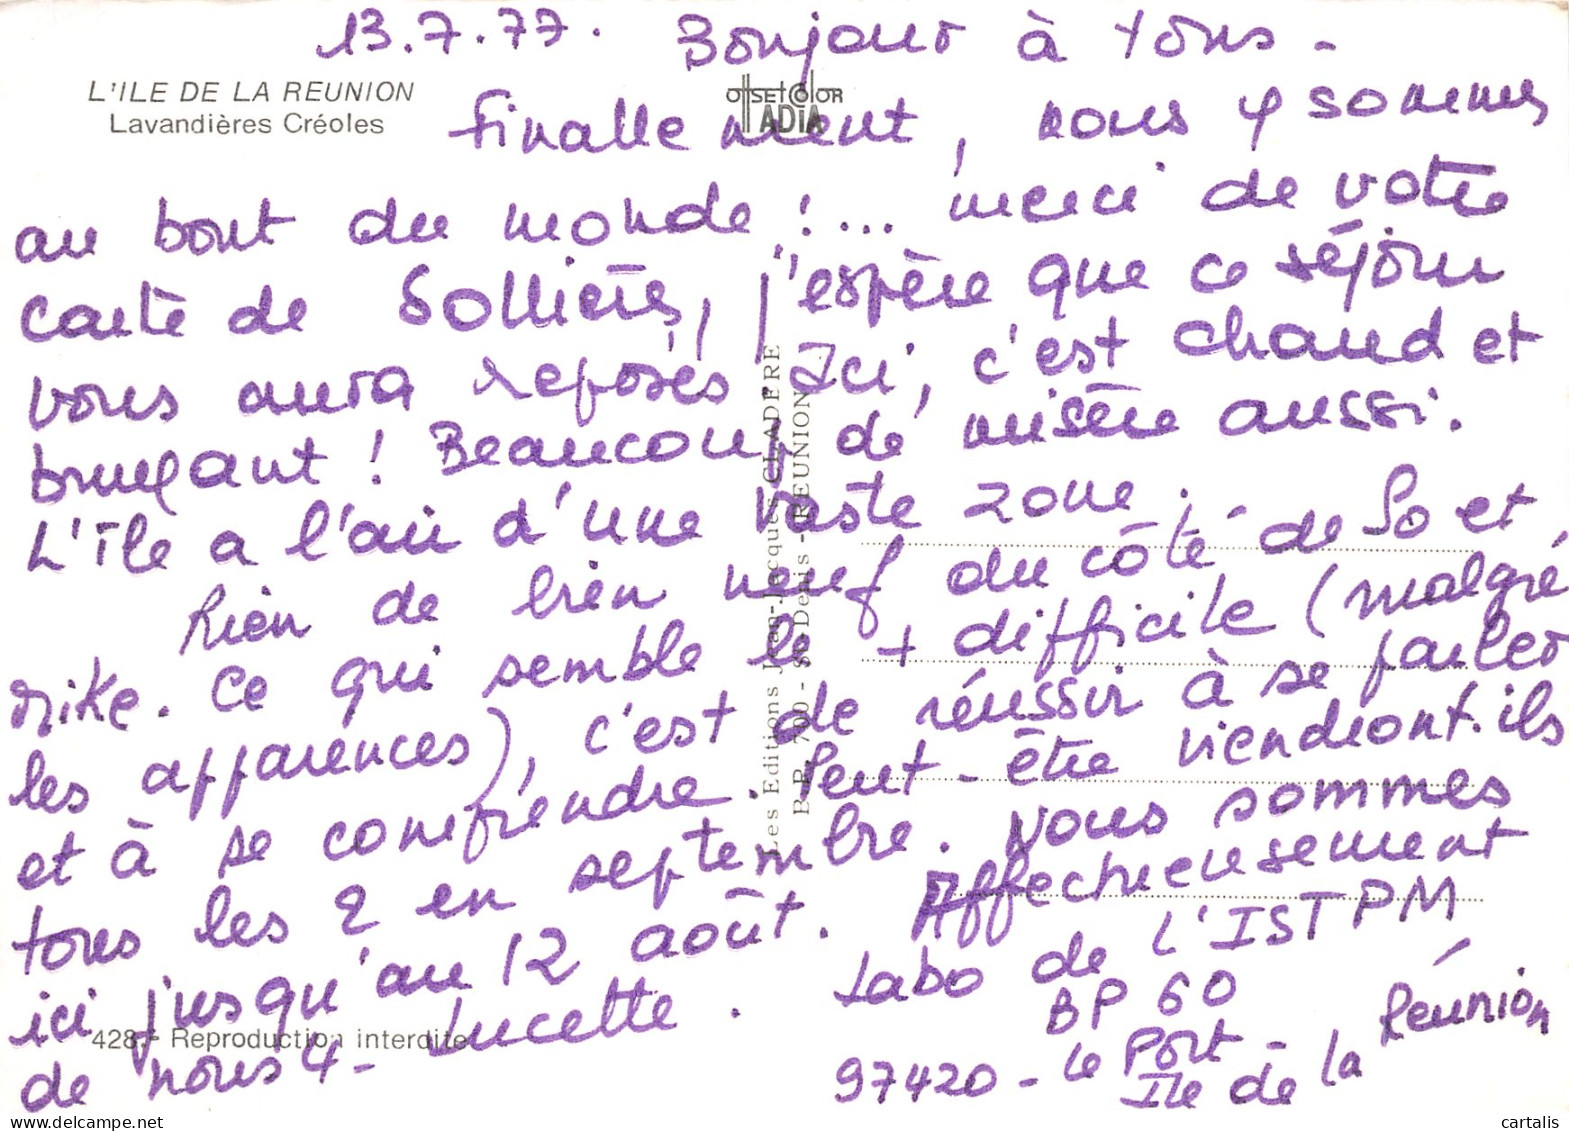 13.7.77. Bonjour à tous -
L'ILE DE LA REUNION
Lavandières Créoles
OffSET COlOR
ADIA
finallement, nous y sommes
au bout du monde !... merci de votre
carte de Sollières, j'espère que ce séjour
vous aura reposés. Ici, c'est chaud et
bruyant ! Beaucoup de misère aussi.
L'Ile a l'air d'une vaste zone.
Rien de bien neuf du côté de So et
Mike. Ce qui semble le + difficile (malgré
les apparences), c'est de réussir à se parler
et à se comprendre. Peut-être viendront ils
tous les 2 en septembre. Nous sommes
ici jusqu'au 12 août. Affectueusement
de nous 4 - Lucette.
Labo de L'ISTPM
BP 60
97420 - Le Port -
Ile de la Réunion
428 - Reproduction interdite
Les Editions Jean-Jacques CLADERE
B.P. 700 - St-Denis - REUNION
cartalis